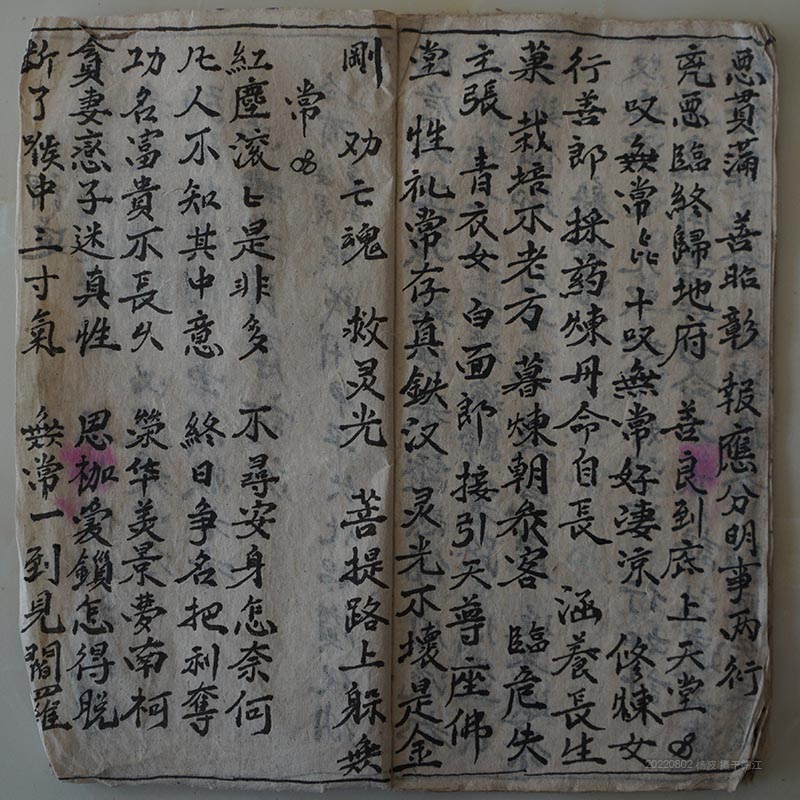 惡貫滿 善昭彰 報應分明事两行
兇惡臨終歸地府 善良到底上天堂
叹無常 十叹無常好凄凉 修煉女
行善郎 採药煉丹命自長 涵養長生
菓 栽培不老方 暮煉朝叅客 臨危失
主張 青衣女 白面郎 接引天尊座佛
堂 性礼常存真鉄汉 灵光不壞是金
剛 劝亡魂 救灵光 菩提路上躲無
常
紅塵滚匕是非多 不尋安身怎奈何
凡人不知其中意 終日争名把利奪
功名富貴不長久 榮华美景夢南柯
貪妻戀子迷真性 恩枷爱鎖怎得脱
断了喉中三寸氣 無常一到見閻羅
20220802 杨波